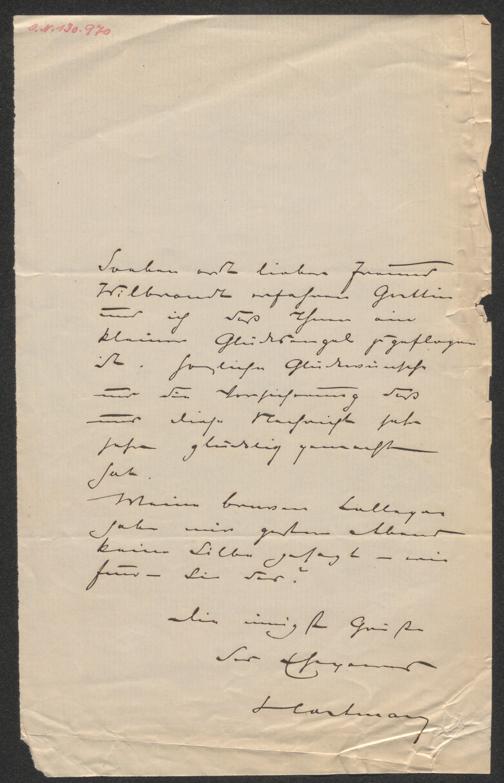 O.N. 130.970
Soeben erst lieber Freund
Wilbrandt erfahren Gattin
und ich daß Ihnen ein
kleiner Glücksengel zugeflogen
ist. Herzliche Glückwünsche
und die Versicherung daß
uns diese Nachricht sehr
sehr glücklich gemacht
hat.
Meine braven Collegen
haben mir gestern Abend
keine Silbe gesagt – wie
Sie das?
Die innigsten Grüße
des Ehepaares
Hartmann